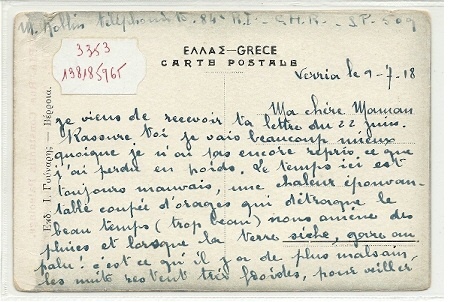 M. Rollin téléphoniste - 84e R.I. - C.H.R. - S.P. 509
3353
198185965
ΕΛΛΑΣ—GRECE
CARTE POSTALE
Verria le 9-7-18
Ma chère Maman
Je viens de recevoir ta lettre du 22 juin.
Rassure toi je vais beaucoup mieux
quoique je n'ai pas encore repris ce que
j'ai perdu en poids. Le temps ici est
toujours mauvais, une chaleur épouvan-
table coupée d'orages qui détraque le
beau temps (trop beau) nous amène des
pluies et lorsque la terre sèche, gare au
palu! c'est ce qu'il y a de plus malsain,
les nuits restent très froides, pour veiller
Εκδ. Ι. Γούναρης — Βέρροια.